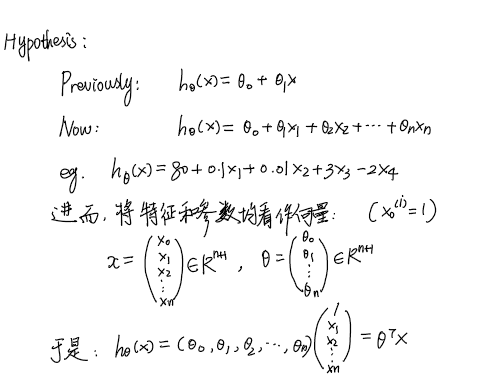 Hypothesis:
Previously: hθ(x) = θ₀ + θ₁x
Now: hθ(x) = θ₀ + θ₁x₁ + θ₂x₂ + ⋯ + θₙxₙ
eg. hθ(x) = 80 + 0.1x₁ + 0.01x₂ + 3x₃ - 2x₄
进而, 将特征和参数均看作向量: (x₀⁽ⁱ⁾ = 1)
x = (x₀ x₁ x₂ ⋮ xₙ) ∈ ℝⁿ⁺¹, θ = (θ₀ θ₁ ⋮ θₙ) ∈ ℝⁿ⁺¹
于是: hθ(x) = (θ₀, θ₁, θ₂, ⋯, θₙ) (1 x₁ x₂ ⋮ xₙ) = θᵀx